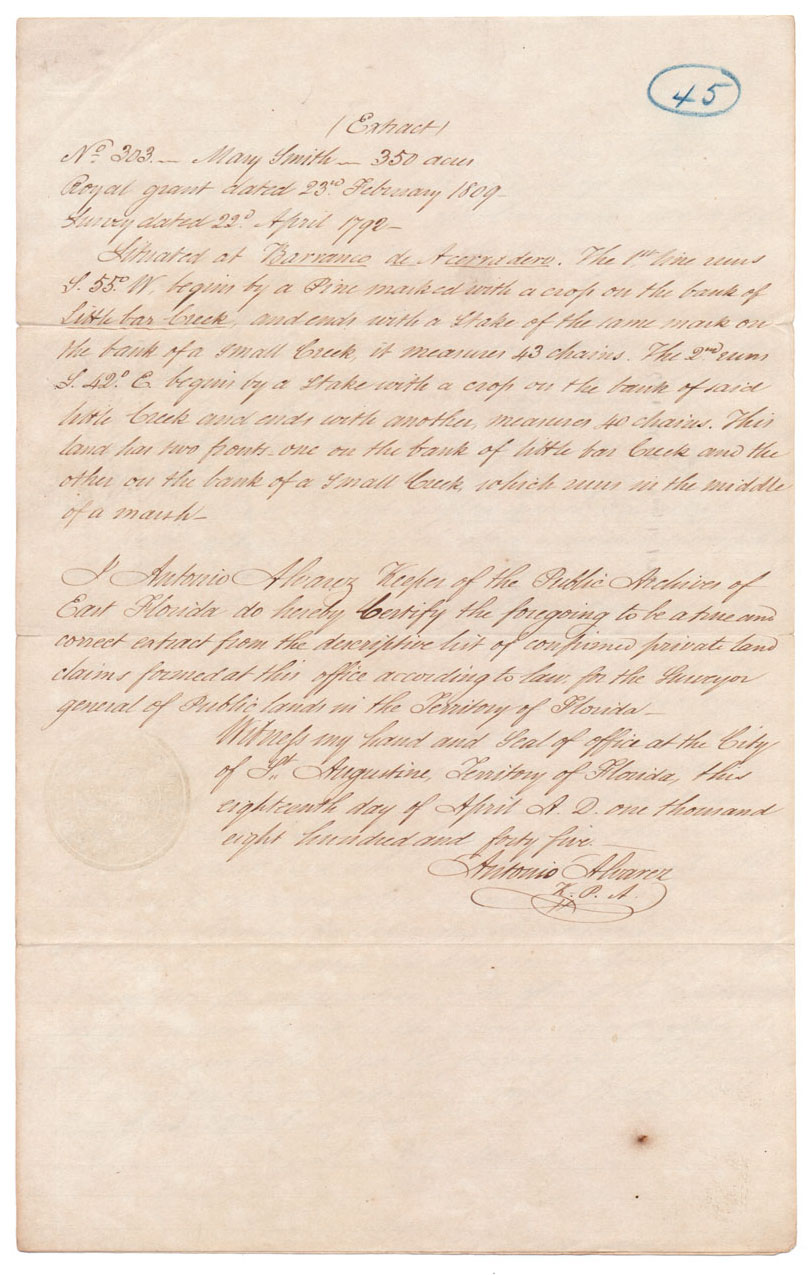 45
(Extract)
No. 303. — Mary Smith — 350 acres
Royal grant dated 23rd. February 1809 —
Survey dated 22d. April 1792 —
Situated at Barranco de Acerradero. The 1st. line runs
S. 55°. W. begins by a Pine marked with a crop on the bank of
Little bar Creek, and ends with a Stake of the same mark on
the bank of a Small Creek, it measures 43 chains. The 2nd runs
S. 42°. E. begins by a Stake with a crop on the bank of said
little Creek and ends with another, measures 40 chains. This
land has two fronts - one on the bank of little bar Creek and the
other on the bank of a Small Creek, which runs in the middle
of a marsh —
I Antonio Alvarez Keeper of the Public Archives of
East Florida do hereby Certify the foregoing to be a true and
correct extract from the descriptive list of confirmed private land
claims formed at this office according to law, for the Surveyor
general of Public lands in the Territory of Florida —
Witness my hand and Seal of office at the City
of St. Augustine, Territory of Florida, this
eighteenth day of April A. D. one thousand
eight hundred and forty five. —
Antonio Alvarez
K. P. A.